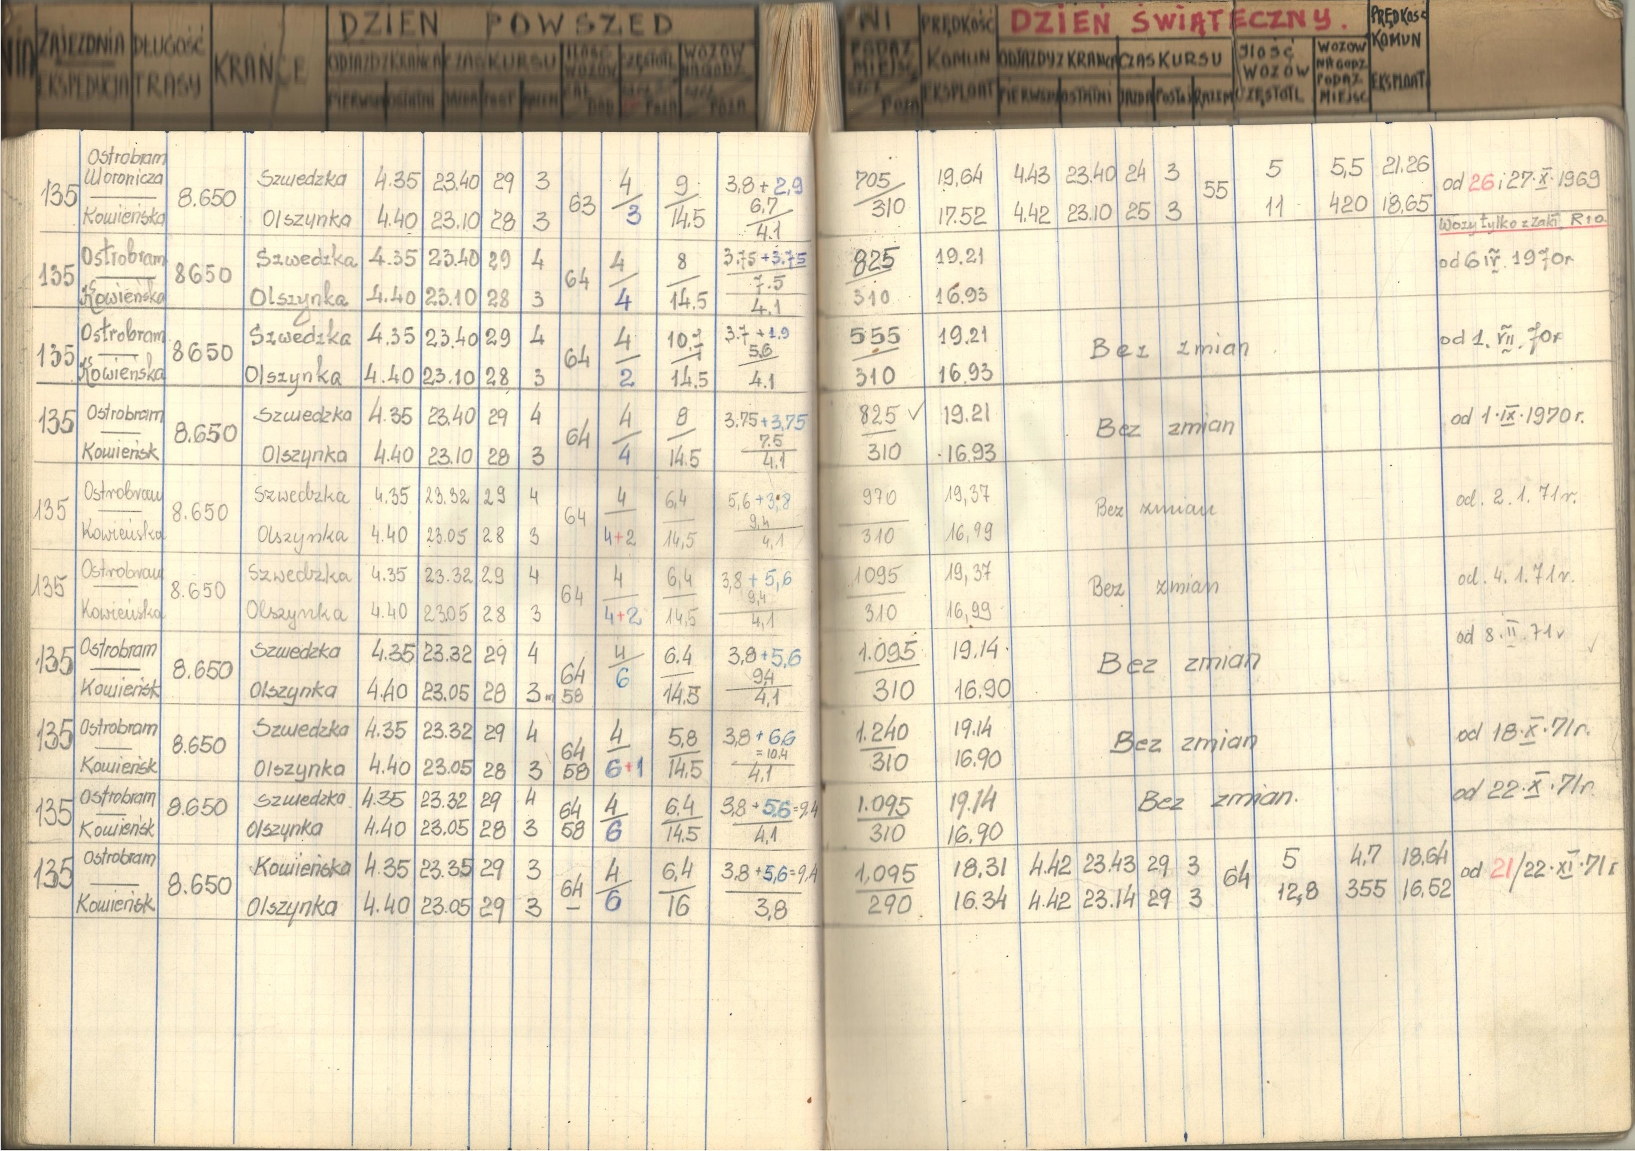 ZAJEZDNIA
EKSPEDYCJA
DŁUGOŚĆ
TRASY
KRAŃCE
DZIEŃ POWSZED
ODJAZD Z KRAŃCA
PIERWSZY OSTATNI
CZAS KURSU
JAZDA POST RAZEM
ILOŚĆ
WOZÓW
CAŁ
DOD
CZĘSTOTL
SZCZ
POZA
WOZÓW
NA GODZ
POZA
NI
PODAŻ
MIEJSC
SZCZ
POZA
PRĘDKOŚĆ
KOMUN
EKSPLOAT
DZIEŃ ŚWIĄTECZNY.
ODJAZDY Z KRAŃCA
PIERWSZY OSTATNI
CZAS KURSU
JAZDA POSTOJ RAZEM
ILOŚĆ
WOZÓW
CZĘSTOTL
WOZÓW
NA GODZ
PODAŻ
MIEJSC
PRĘDKOŚĆ
KOMUN
EKSPLOAT
135 Ostrobram Woronicza 8.650 Szwedzka 4.35 23.40 29 3 63 4 9 3,8 + 2,9 705 19,64 4.43 23.40 24 3 55 5 5,5 21.26 od 26 i 27.X.1969
Kowieńska Olszynka 4.40 23.10 28 3 3 14.5 6,7 4.1 310 17.52 4.42 23.10 25 3 11 420 18,65
Wozy tylko z Zakł. R10.
135 Ostrobram 8650 Szwedzka 4.35 23.40 29 4 64 4 8 3.75+3.75 825 19.21 od 6 IV 1970r
Kowieńska Olszynka 4.40 23.10 28 3 4 14.5 7.5 4.1 310 16.93
135 Ostrobram 8650 Szwedzka 4.35 23.40 29 4 64 4 3.7 +1.9 555 19.21 Bez zmian od 1. VII. 70r
Kowieńska Olszynka 4.40 23.10 28 3 2 14.5 5.6 4.1 310 16.93
135 Ostrobram 8.650 Szwedzka 4.35 23.40 29 4 64 4 8 3.75+3,75 825 ✓ 19.21 Bez zmian od 1.IX.1970r.
Kowieńsk Olszynka 4.40 23.10 28 3 4 14.5 7.5 4.1 310 16.93
135 Ostrobram 8.650 Szwedzka 4.35 23.32 29 4 64 4 6,4 5,6+3,8 970 19,37 Bez zmian od. 2.1.71r.
Kowieńska Olszynka 4.40 23.05 28 3 4+2 14,5 9,4 4,1 310 16,99
135 Ostrobram 8.650 Szwedzka 4.35 23.32 29 4 64 4 6,4 3,8 + 5,6 1095 19,37 Bez zmian od. 4.1.71r.
Kowieńska Olszynka 4.40 23.05 28 3 4+2 14,5 9,4 4,1 310 16,99
135 Ostrobram 8.650 Szwedzka 4.35 23.32 29 4 64 4 6.4 3,8+5,6 1.095 19.14 Bez zmian od 8.II.71r ✓
Kowieńsk Olszynka 4.40 23.05 28 3 58 6 14.5 9.4 4,1 310 16.90
135 Ostrobram 8.650 Szwedzka 4.35 23.32 29 4 64 4 5,8 3,8 + 6,6 1.240 19.14 Bez zmian od 18.X.71r.
Kowieńsk Olszynka 4.40 23.05 28 3 58 6+1 14.5 =10.4 4,1 310 16.90
135 Ostrobram 8.650 Szwedzka 4.35 23.32 29 4 64 4 6.4 3,8+5,6=9.4 1.095 19.14 Bez zmian. od 22.X.71r.
Kowieńsk Olszynka 4.40 23.05 28 3 58 6 14.5 4,1 310 16,90
135 Ostrobram 8.650 Kowieńska 4.35 23.35 29 3 64 4 6,4 3.8+5,6=9,4 1,095 18,31 4.42 23.43 29 3 64 5 4,7 18,64 od 21/22.XI.71r
Kowieńsk Olszynka 4.40 23.05 29 3 – 6 16 3,8 290 16.34 4.42 23.14 29 3 12,8 355 16,52